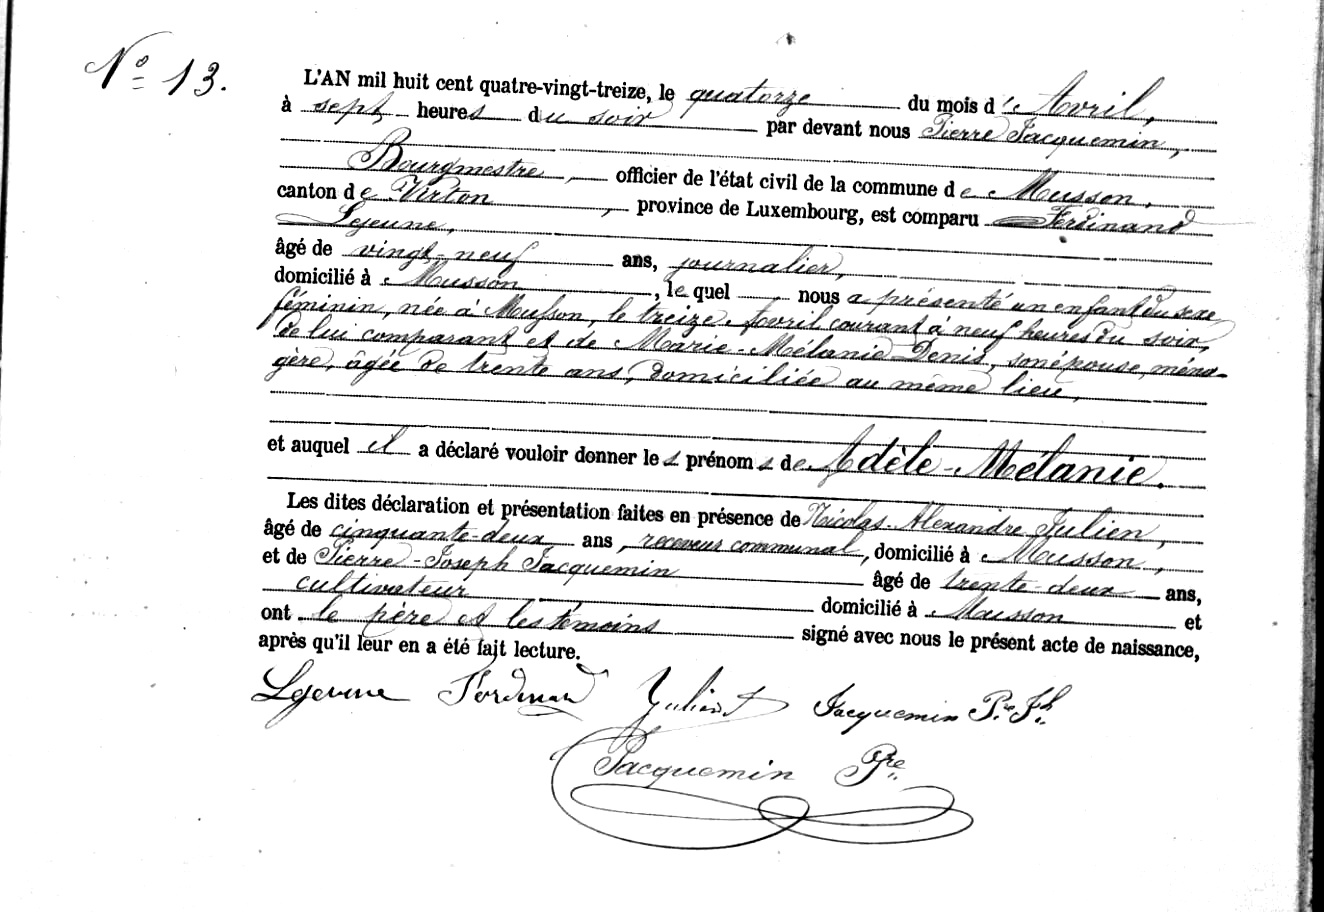 N° 13.
L'AN mil huit cent quatre-vingt-treize, le quatorze du mois d'Avril,
à sept heures du soir par devant nous Pierre Jacquemin,
Bourgmestre, officier de l'état civil de la commune de Musson,
canton de Virton, province de Luxembourg, est comparu Ferdinand
Lejeune,
âgé de vingt-neuf ans, journalier,
domicilié à Musson, le quel nous a présenté un enfant du sexe
féminin, née à Musson, le treize Avril courant à neuf heures du soir,
de lui comparant et de Marie-Mélanie Denis, son épouse, ména-
gère, âgée de trente ans, domiciliée au même lieu,
et auquel il a déclaré vouloir donner les prénoms de Adèle-Mélanie.
Les dites déclaration et présentation faites en présence de Nicolas-Alexandre Julien,
âgé de cinquante-deux ans, receveur communal, domicilié à Musson,
et de Pierre-Joseph Jacquemin âgé de trente-deux ans,
cultivateur, domicilié à Musson et
ont le père et les témoins signé avec nous le présent acte de naissance,
après qu'il leur en a été fait lecture.
Lejeune Ferdinand Julien Jacquemin Pre Jh
Jacquemin Pre